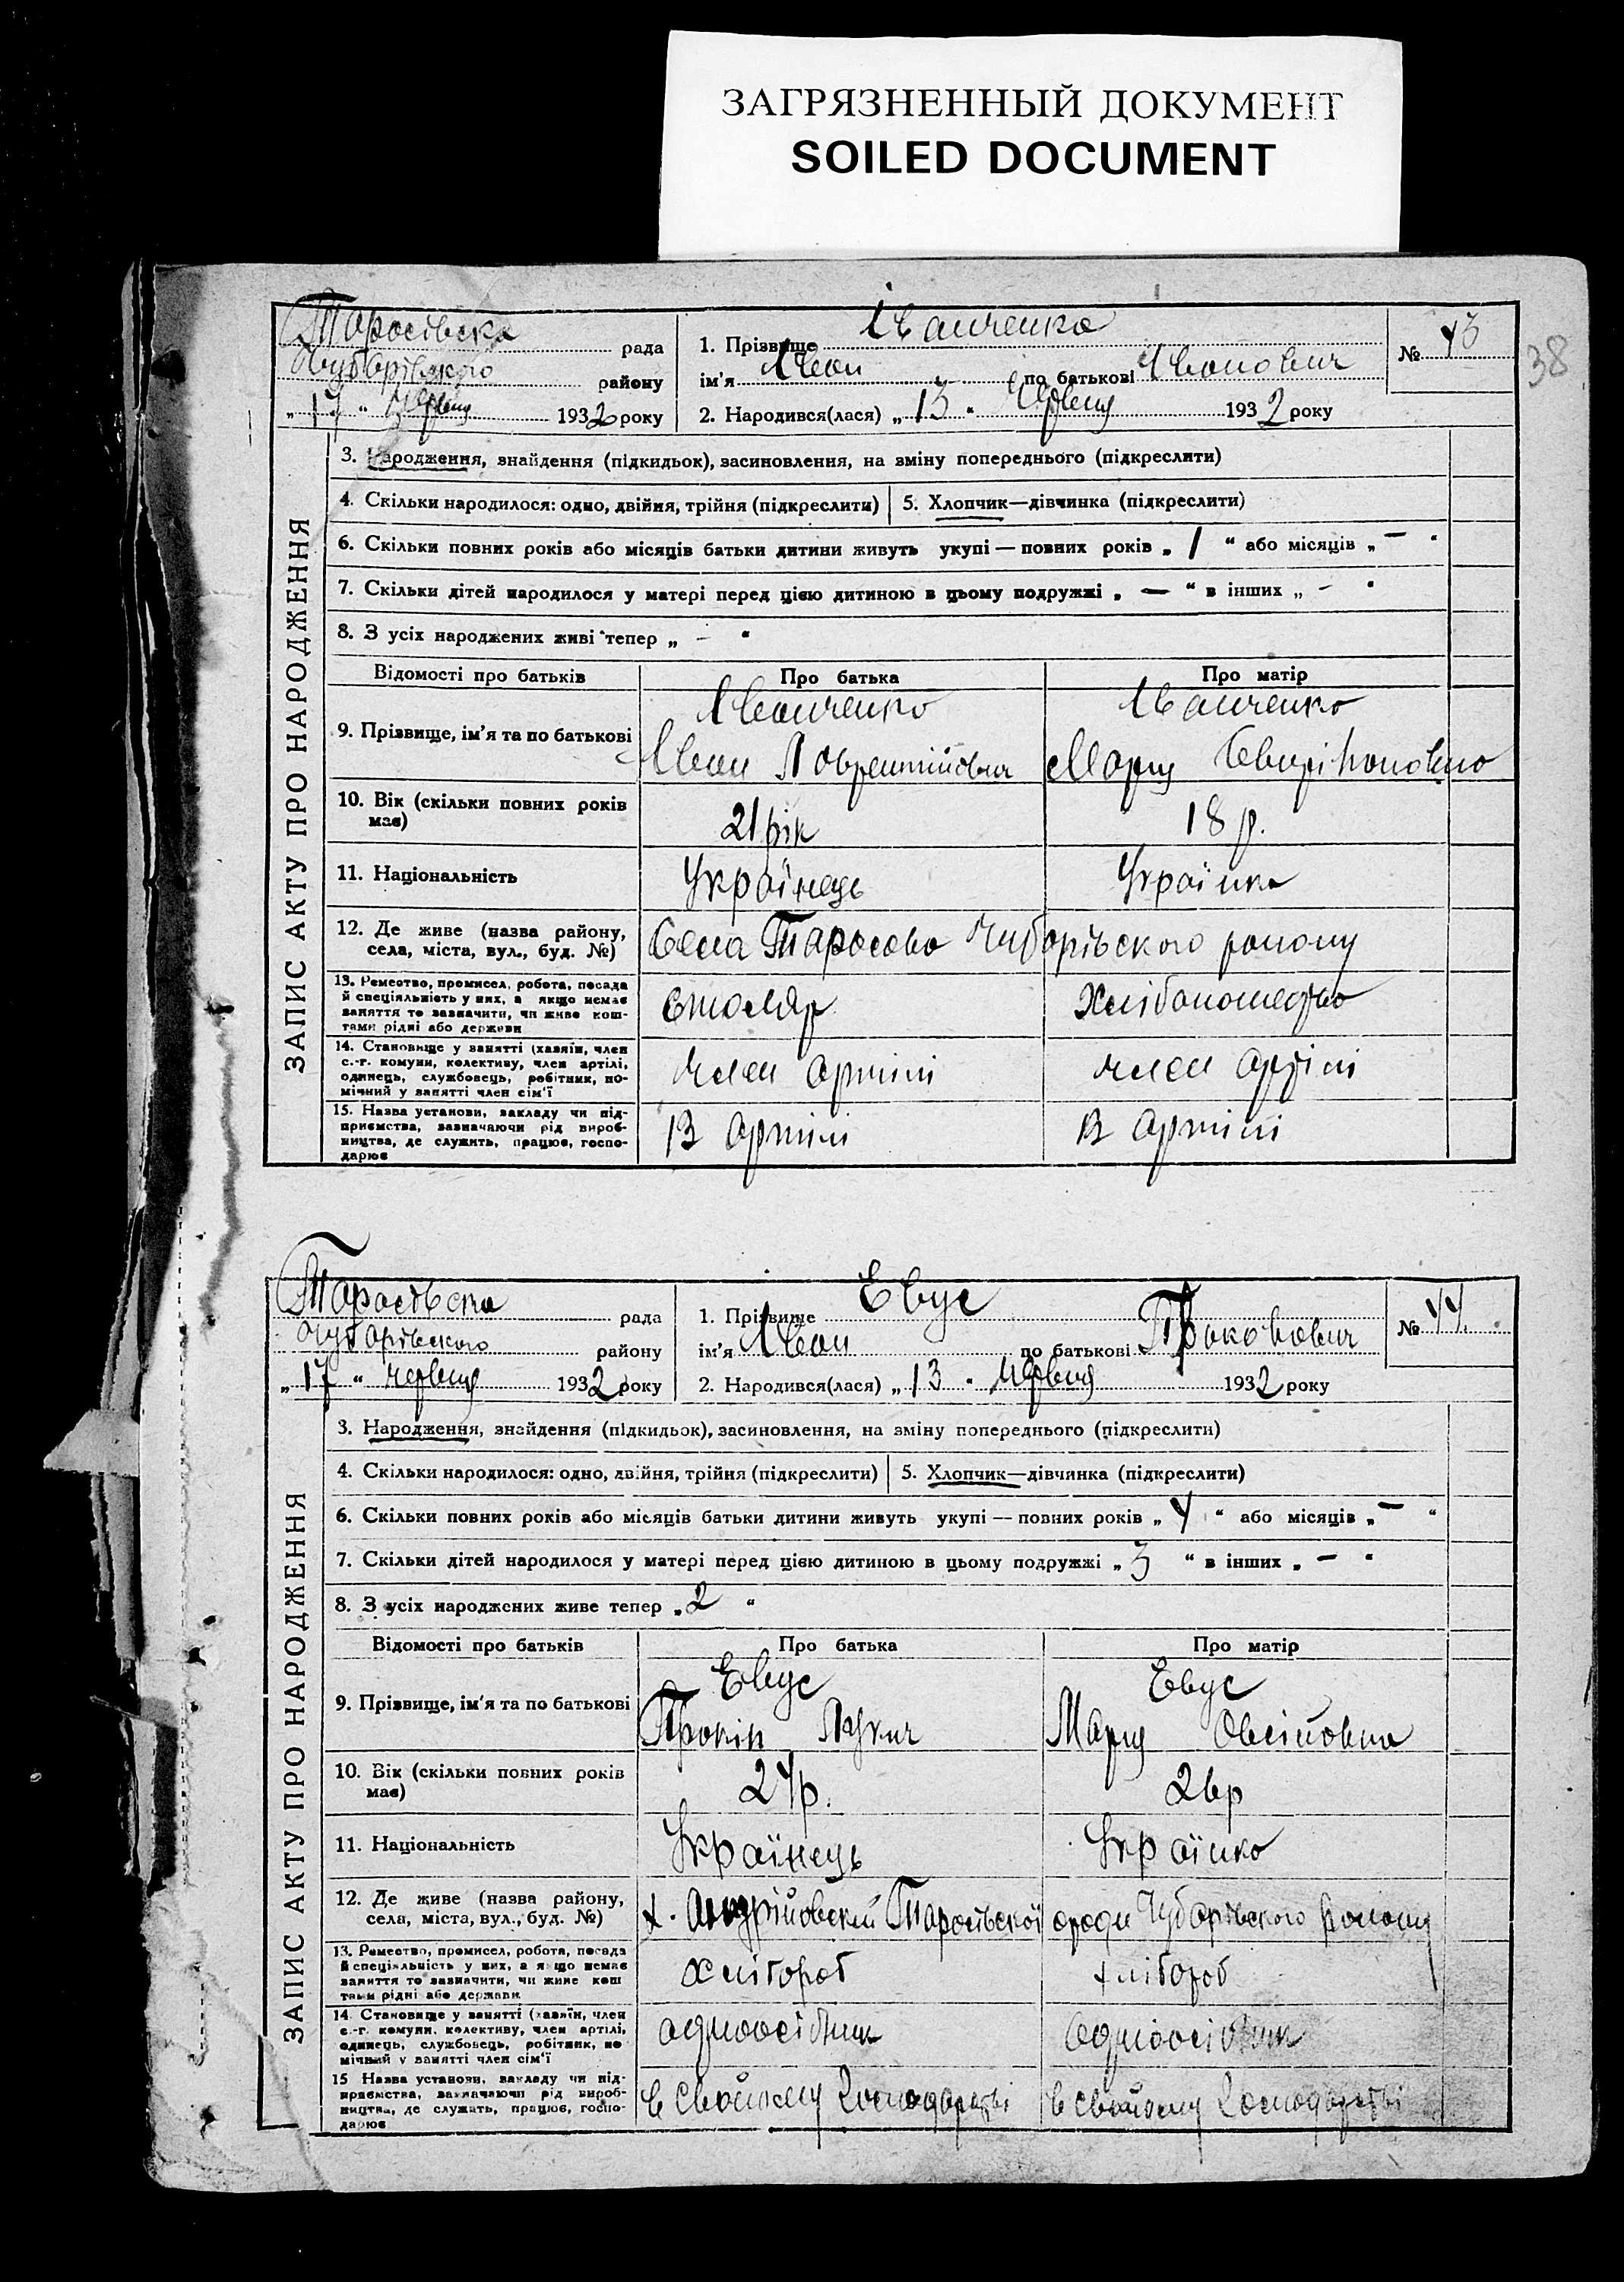 ЗАГРЯЗНЕННЫЙ ДОКУМЕНТ
SOILED DOCUMENT
38
ЗАПИС АКТУ ПРО НАРОДЖЕННЯ
Тарасівська рада
Чубарівського району
„17“ червня 1932 року
1. Прізвище Іванченко
ім'я Іван по батькові Іванович
№ 43
2. Народився(лася) „13“ червня 1932 року
3. Народження, знайдення (підкидьок), засиновлення, на зміну попереднього (підкреслити)
4. Скільки народилося: одно, двійня, трійня (підкреслити) 5. Хлопчик—дівчинка (підкреслити)
6. Скільки повних років або місяців батьки дитини живуть укупі — повних років „1“ або місяців „—“
7. Скільки дітей народилося у матері перед цією дитиною в цьому подружжі „—“ в інших „—“
8. З усіх народжених живі тепер „-“
Відомості про батьків Про батька Про матір
9. Прізвище, ім'я та по батькові
Іванченко Іванченко
Іван Лаврентійович Марія
10. Вік (скільки повних років має) 21 рік 18 р.
11. Національність Українець Українка
12. Де живе (назва району, села, міста, вул., буд. №) Села Тарасово Чубарівського району
13. Ремество, промисел, робота, посада
й спеціяльність у них, а якщо немає
заняття то зазначити, чи живе кош-
тами рідні або держави
столяр
14. Становище у занятті (хазяїн, член
с.-г. комуни, колективу, член артілі,
одинець, службовець, робітник, по-
мічний у занятті член сім'ї
член артілі член артілі
15. Назва установи, закладу чи під-
приємства, зазначаючи рід вироб-
ництва, де служить, працює, госпо-
дарює
В артілі В артілі
ЗАПИС АКТУ ПРО НАРОДЖЕННЯ
Тарасівська рада
Чубарівського району
„17“ червня 1932 року
1. Прізвище Евус
ім'я Іван по батькові Прокопович
№ 44.
2. Народився(лася) „13“ червня 1932 року
3. Народження, знайдення (підкидьок), засиновлення, на зміну попереднього (підкреслити)
4. Скільки народилося: одно, двійня, трійня (підкреслити) 5. Хлопчик—дівчинка (підкреслити)
6. Скільки повних років або місяців батьки дитини живуть укупі — повних років „4“ або місяців „—“
7. Скільки дітей народилося у матері перед цією дитиною в цьому подружжі „3“ в інших „—“
8. З усіх народжених живе тепер „2“
Відомості про батьків Про батька Про матір
9. Прізвище, ім'я та по батькові
Евус Евус
Прокіп Лукич Марія Овсіївна
10. Вік (скільки повних років має) 24р. 26р
11. Національність Українець Українко
12. Де живе (назва району, села, міста, вул., буд. №) х. Тарасівської Чубарівського району
13. Ремество, промисел, робота, посада
й спеціяльність у них, а якщо немає
заняття то зазначити, чи живе кош
тами рідні або держави
хлібороб хлібороб
14. Становище у занятті (хазяїн, член
с.-г. комуни, колективу, член артілі,
одинець, службовець, робітник, по
мічний у занятті член сім'ї
одноосібник одноосібник
15 Назва установи, закладу чи під-
приємства, зазначаючи рід вироб-
ництва, де служить, працює, госпо-
дарює
в свойому господарстві в свойому господарстві